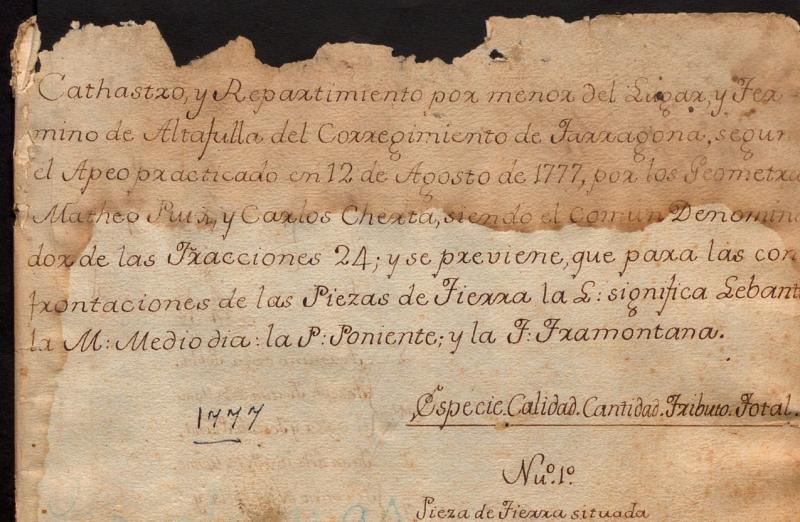 Cathastro, y Repartimiento por menor del Lugar, y Ter
mino de Altafulla del Corregimiento de Tarragona, segun
el Apeo practicado en 12 de Agosto de 1777, por los Geometra
Matheo Ruix, y Carlos Cherta, siendo el comun Denomina
dor de las Fracciones 24; y se previene, que para las con
frontaciones de las Piezas de Tierra la L: significa Lebant
la M: Mediodia: la P: Poniente; y la T: Tramontana.
1777
Especie. Calidad. Cantidad. Tributo. Total.
Nuº. 1º.
Pieza de Tierra situada